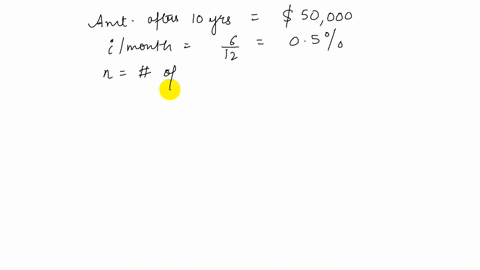 Amt. after 10 yrs = $ 50,000
i/month = 6/12 = 0.5%
n = # of